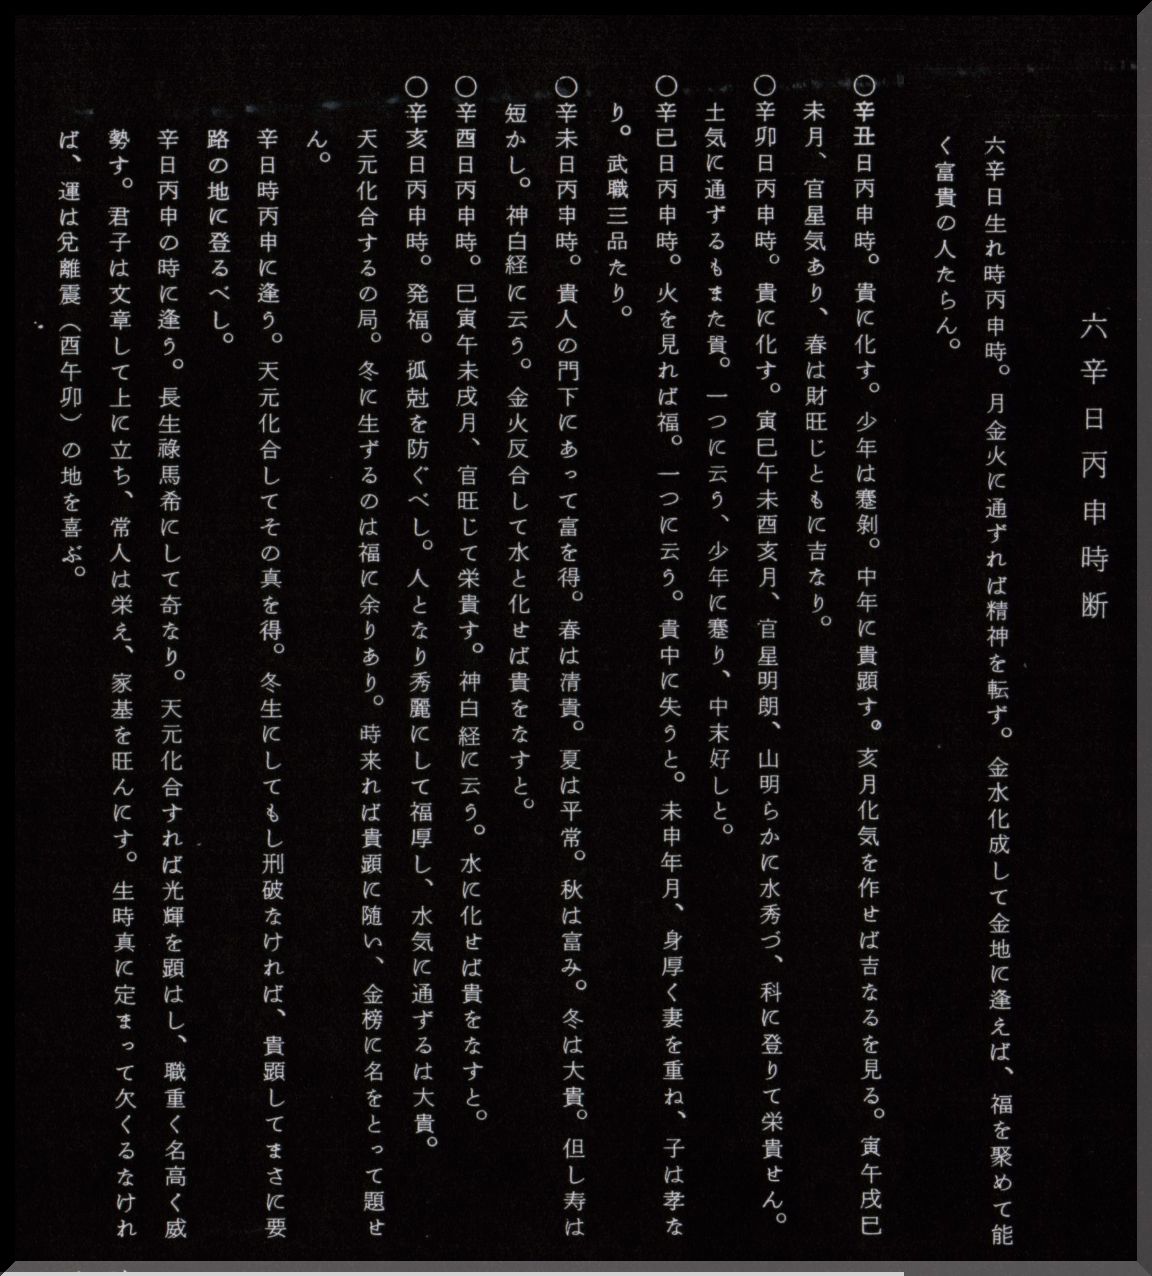 六辛日丙申時断
六辛日生れ時丙申時。月金火に通ずれば精神を転ず。金水化成して金地に逢えば、福を聚めて能
く富貴の人たらん。
〇辛丑日丙申時。貴に化す。少年は蹇剝。中年に貴顕す。亥月化気を作せば吉なるを見る。寅午戌巳
未月、官星気あり、春は財旺じともに吉なり。
〇辛卯日丙申時。貴に化す。寅巳午未酉亥月、官星明朗、山明らかに水秀づ、科に登りて栄貴せん。
土気に通ずるもまた貴。一つに云う、少年に蹇り、中末好しと。
〇辛巳日丙申時。火を見れば福。一つに云う。貴中に失うと。未申年月、身厚く妻を重ね、子は孝な
り。武職三品たり。
〇辛未日丙申時。貴人の門下にあって富を得。春は清貴。夏は平常。秋は富み。冬は大貴。但し寿は
短かし。神白経に云う。金火反合して水と化せば貴をなすと。
〇辛酉日丙申時。巳寅午未戌月、官旺じて栄貴す。神白経に云う。水に化せば貴をなすと。
〇辛亥日丙申時。発福。孤尅を防ぐべし。人となり秀麗にして福厚し、水気に通ずるは大貴。
天元化合するの局。冬に生ずるのは福に余りあり。時来れば貴顕に随い、金榜に名をとって題せ
ん。
辛日時丙申に逢う。天元化合してその真を得。冬生にしてもし刑破なければ、貴顕してまさに要
路の地に登るべし。
辛日丙申の時に逢う。長生祿馬希にして奇なり。天元化合すれば光輝を顕はし、職重く名高く威
勢す。君子は文章して上に立ち、常人は栄え、家基を旺んにす。生時真に定まって欠くるなけれ
ば、運は兌離震（酉午卯）の地を喜ぶ。